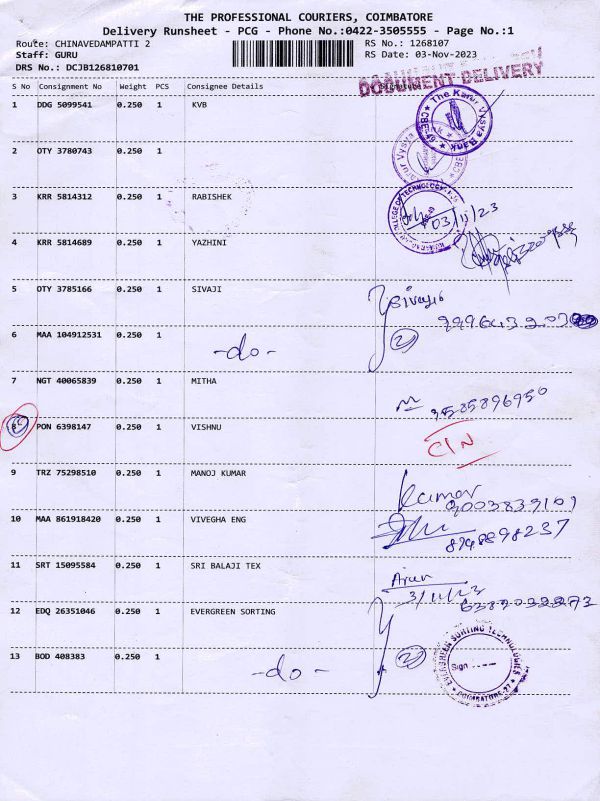 THE PROFESSIONAL COURIERS, COIMBATORE
Delivery Runsheet - PCG - Phone No.:0422-3505555 - Page No.:1
Route: CHINAVEDAMPATTI 2 RS No.: 1268107
Staff: GURU RS Date: 03-Nov-2023
DRS No.: DCJB126810701
DOCUMENT DELIVERY
S No Consignment No Weight PCS Consignee Details
1 DDG 5099541 0.250 1 KVB
The Karur Vysya Bank
2 OTY 3780743 0.250 1
Karur Vysya
3 KRR 5814312 0.250 1 RABISHEK
COLLEGE OF TECHNOLOGY
03/11/23
4 KRR 5814689 0.250 1 YAZHINI
5 OTY 3785166 0.250 1 SIVAJI
Sivaji
6 MAA 104912531 0.250 1
-do- 2
7 NGT 40065839 0.250 1 MITHA
8 PON 6398147 0.250 1 VISHNU
CIN
9 TRZ 75298510 0.250 1 MANOJ KUMAR
Kumar
9003839109
10 MAA 861918420 0.250 1 VIVEGHA ENG
11 SRT 15095584 0.250 1 SRI BALAJI TEX
Arun
3/11/23
12 EDQ 26351046 0.250 1 EVERGREEN SORTING
13 BOD 408383 0.250 1
-do- 2
EVERGREEN SORTING TECHNOLOGIES
Sign
COIMBATORE-27